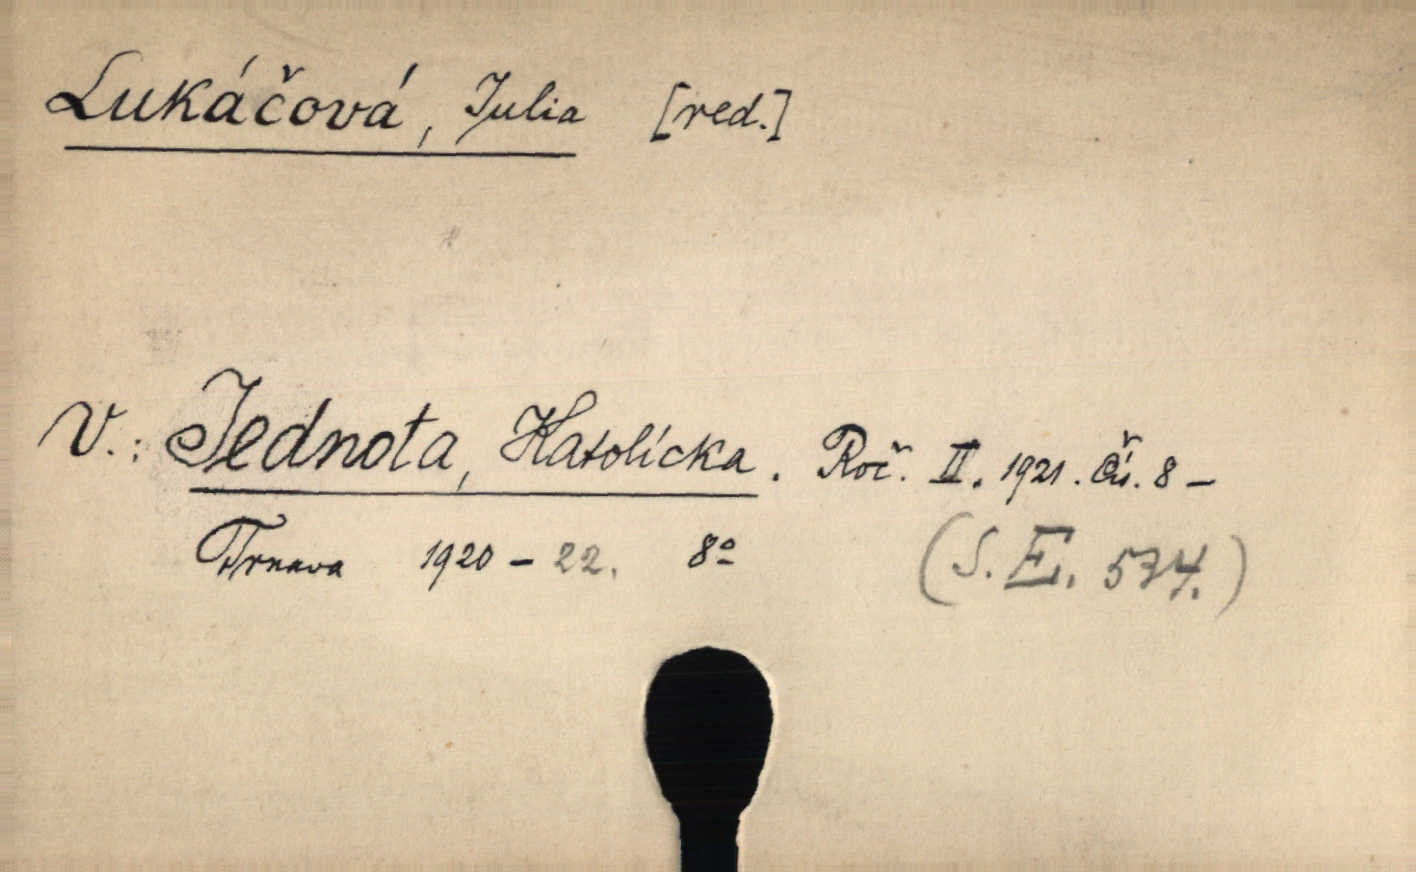 Lukáčová, Julia [red.]
V.: Jednota, Katolícka. Roč. II. 1921. Čís. 8 –
Trnava 1920 – 22. 8º (S. E. 574.)